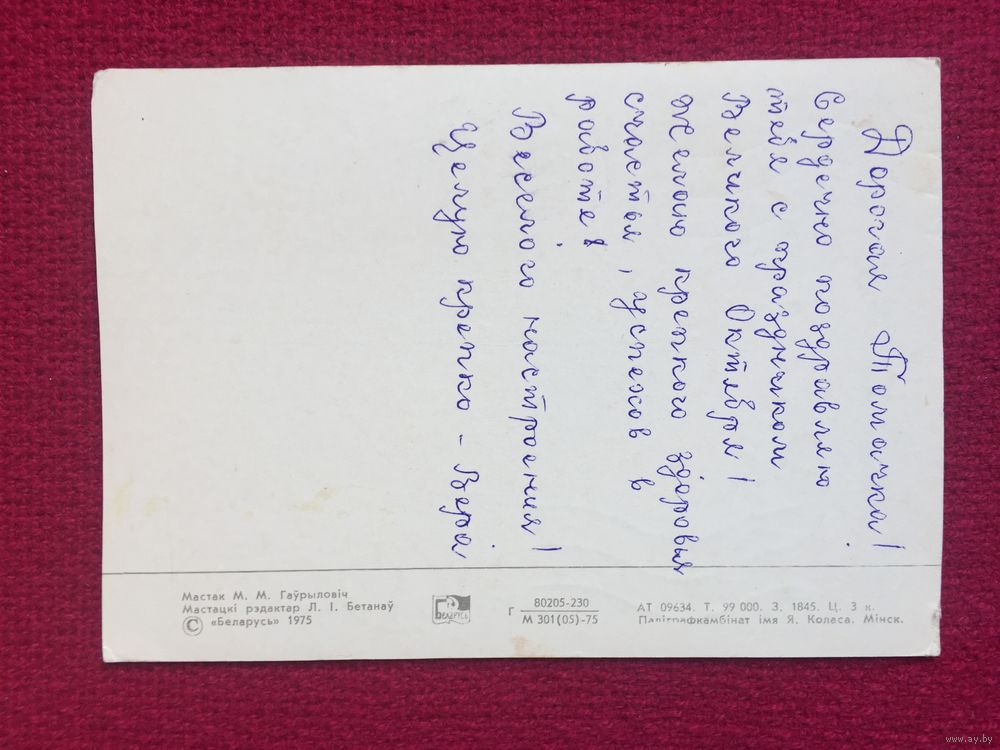 Дорогая Томочка!
Сердечно поздравляю
тебя с праздником
Великого Октября!
Желаю крепкого здоровья
счастья, успехов в
работе!
Веселого настроения!
Целую крепко - Вера
Мастак М. М. Гаўрыловіч
Мастацкі рэдактар Л. І. Бетанаў
© «Беларусь» 1975
БЕЛАРУСЬ
Г 80205-230
М 301(05)-75
АТ 09634. Т. 99 000. З. 1845. Ц. 3 к.
Паліграфкамбінат імя Я. Коласа. Мінск.
www.ay.by